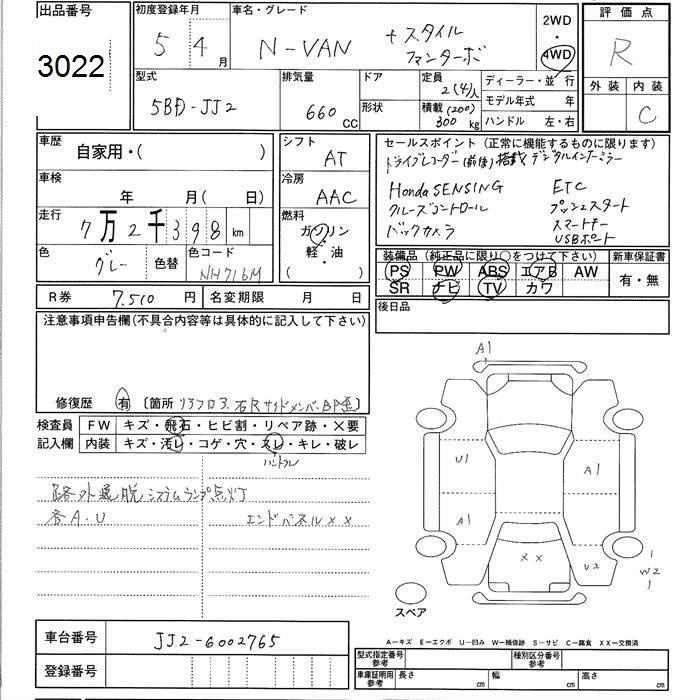 出品番号
3022
初度登録年月
5 4 月
車名・グレード
N-VAN
+スタイル
ファンターボ
2WD
・
4WD
評価点
R
外装 内装
C
型式
5BD-JJ2
排気量
660 cc
ドア
形状
定員
2(4)人
積載 (200)
300 kg
ディーラー・並行
モデル年式 年
ハンドル 左・右
車歴
自家用・( )
シフト
AT
車検
年 月( 日)
冷房
AAC
走行
7万2千398 km
燃料
ガソリン
・
軽・油
( )
色
グレー
色替
色コード
NH716M
R券 7.510 円
名変期限 月 日
セールスポイント(正常に機能するものに限ります)
ドライブレコーダー(前後)搭載 デジタルインナーミラー
Honda SENSING ETC
クルーズコントロール プッシュスタート
バックカメラ スマートキー
USBポート
装備品(純正品に限り○をつけて下さい)
新車保証書
PS PW ABS エアB AW
有・無
SR ナビ TV カワ
後日品
注意事項申告欄(不具合内容等は具体的に記入して下さい)
修復歴 有 〔箇所 リヤフロア、右Rサイドメンバー、BP歪〕
検査員
記入欄
FW キズ・飛石・ヒビ割・リペア跡・×要
内装 キズ・汚レ・コゲ・穴・スレ・キレ・破レ
ハンドル
路外逸脱システムランプ点灯
各A.U エンドパネル××
A1
U1
A1
A1
××
U2
W2
スペア
A-キズ E-エクボ U-凹み W-補修跡 S-サビ C-腐食 XX-交換済
車台番号 JJ2-6002765
登録番号
型式指定番号
参考
種別区分番号
参考
車庫証明用
参考
長さ cm 幅 cm 高さ cm